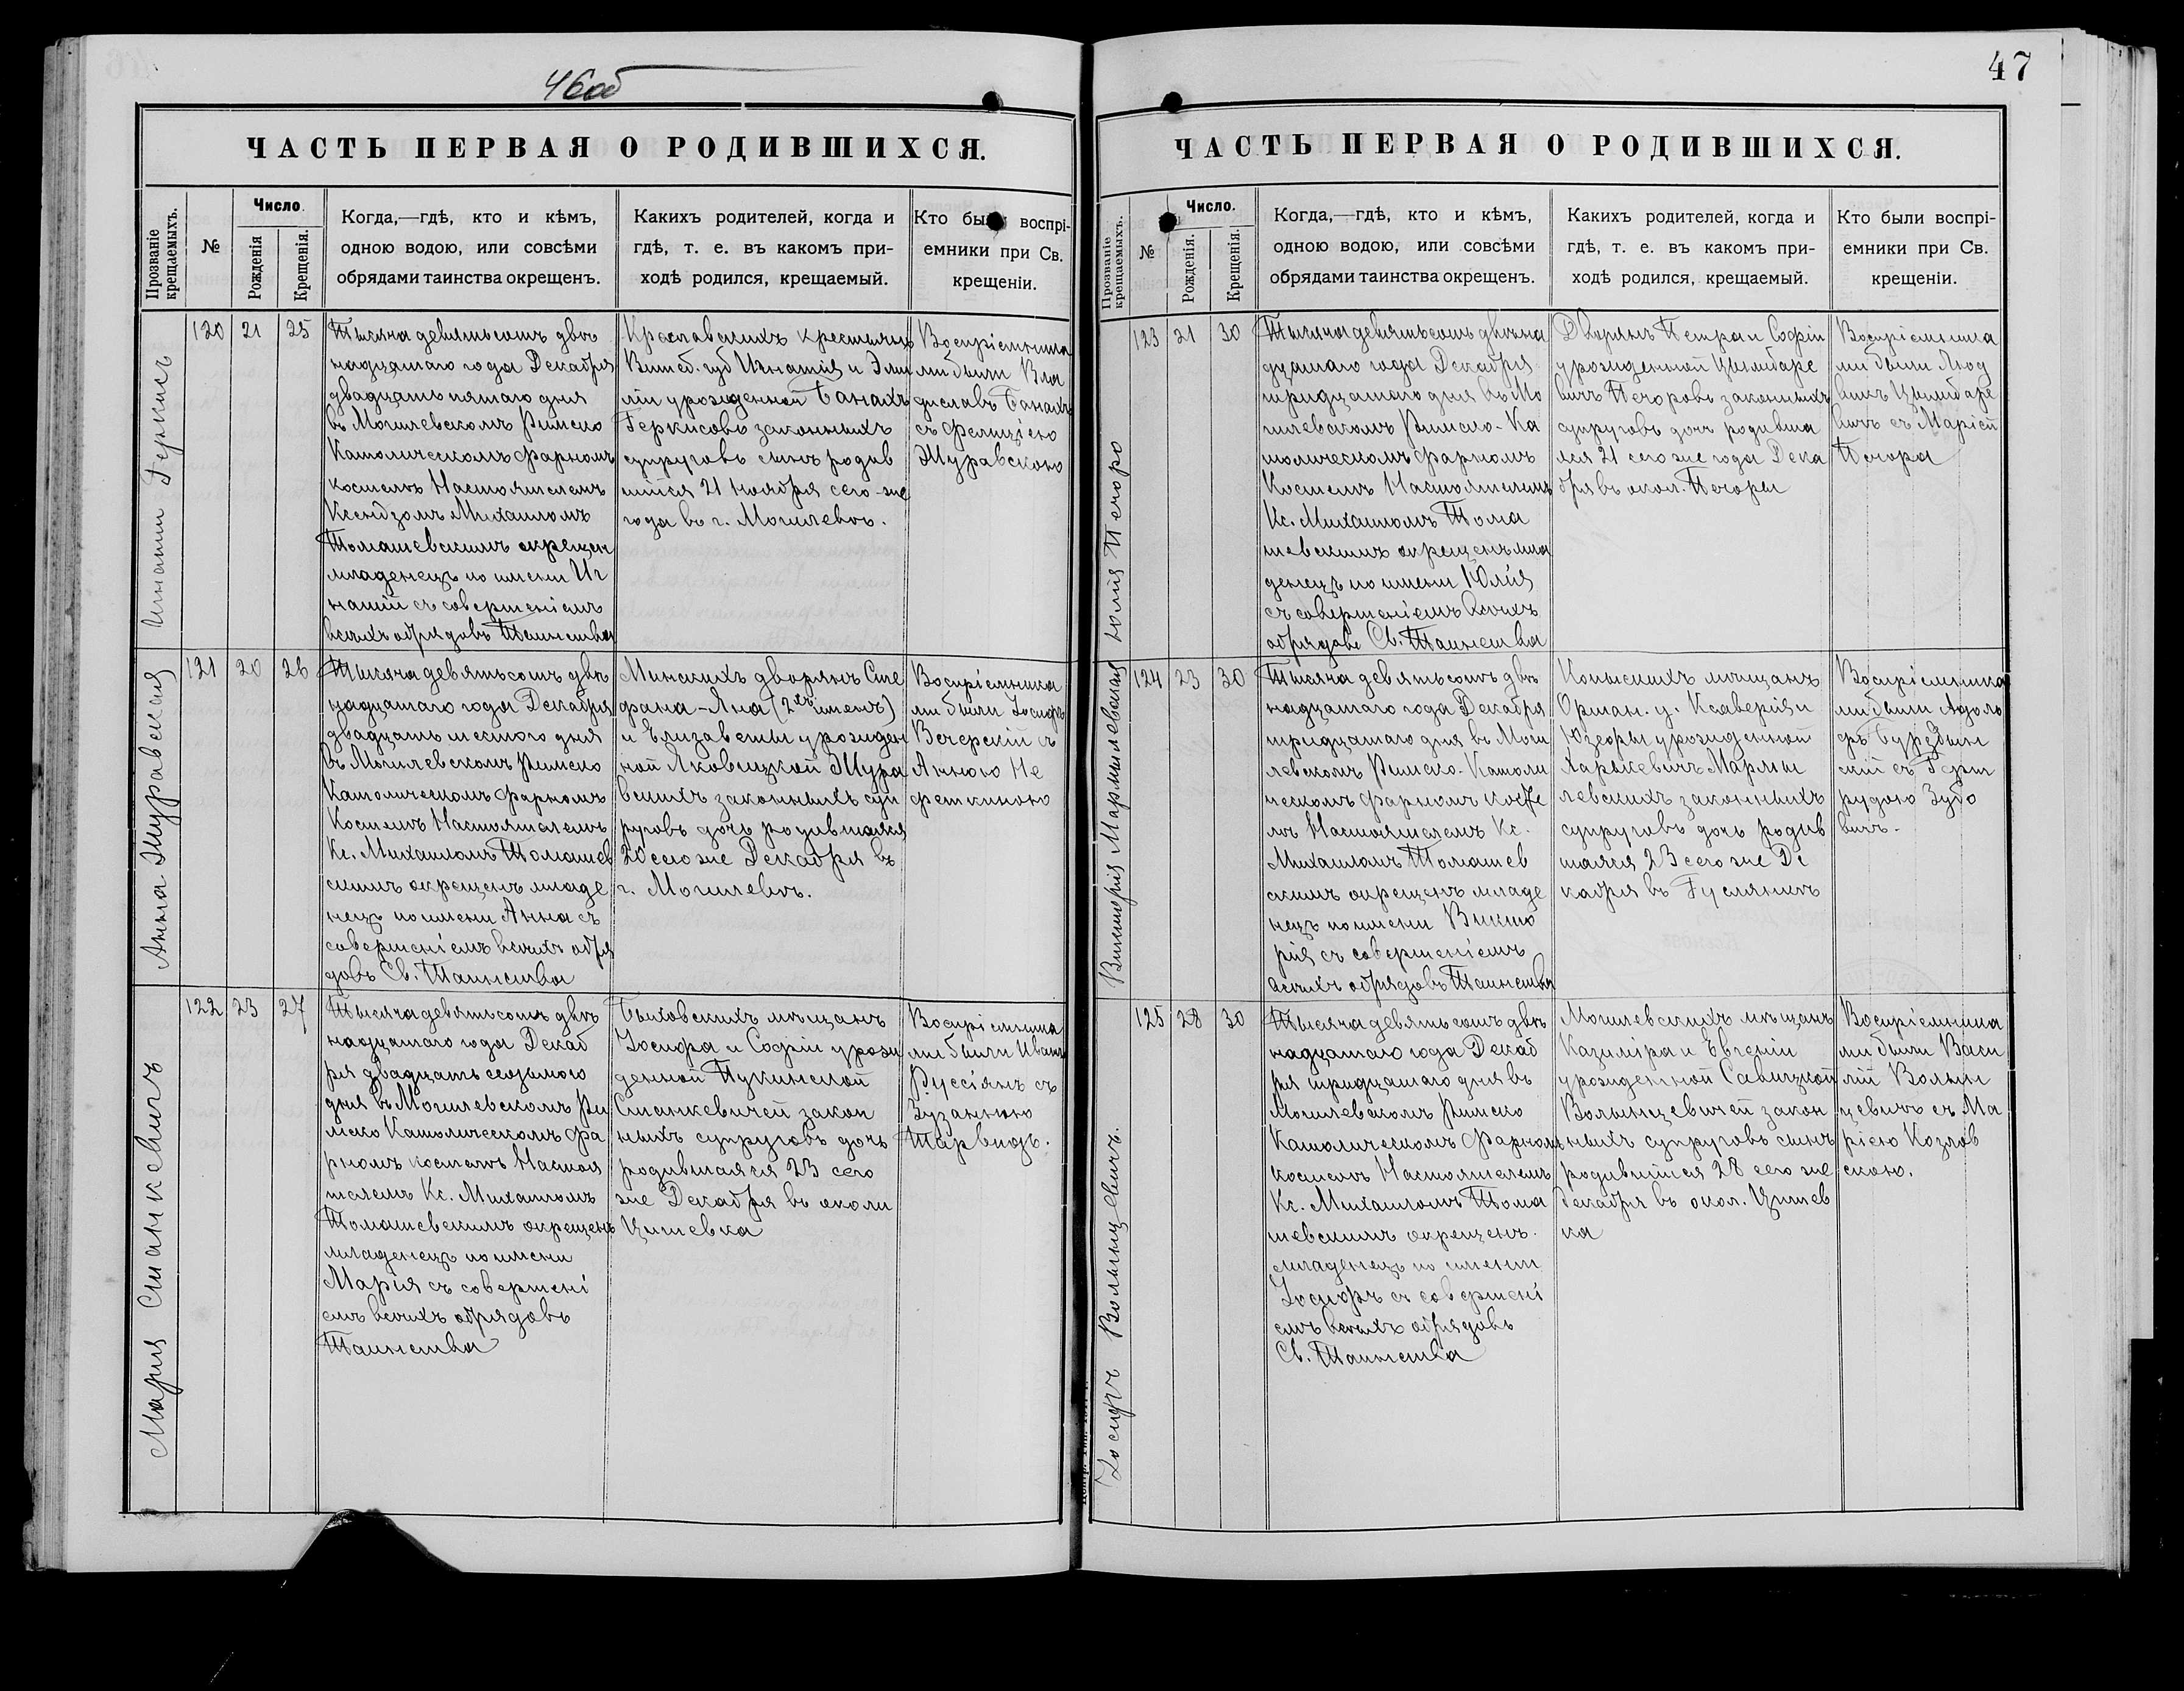 46об
ЧАСТЬ ПЕРВАЯ О РОДИВШИХСЯ.
Прозваніе крещаемыхъ.
№
Число.
Рожденія
Крещенія.
Когда,—гдѣ, кто и кѣмъ,
одною водою, или совсѣми
обрядами таинства окрещенъ.
Какихъ родителей, когда и
гдѣ, т. е. въ какомъ при-
ходѣ родился, крещаемый.
Кто были воспрі-
емники при Св.
крещеніи.
Игнатій Геркисъ
120 21 25
Тысяча девятьсотъ двѣ
надцатаго года Декабря
двадцать пятаго дня
въ Могилевскомъ Римско
Католическомъ фарномъ
костелѣ Настоятелемъ
Ксендзомъ Михаиломъ
Томашевскимъ окрещен
младенецъ по имени Иг
натій съ совершеніемъ
всѣхъ обрядовъ Таинства
Креславскихъ крестьянъ
Витеб. губ Игнатія и Эми
ліи урожденной Банахъ
Геркисовъ законныхъ
супруговъ сынъ родив
шійся 21 Ноября сего-же
года въ г. Могилевѣ.
Воспріемника
ми были Вла
диславъ Банахъ
съ Фелиціею
Журавскою
Анна Журавская
121 20 26
Тысяча девятьсотъ двѣ
надцатаго года Декабря
двадцать шестого дня
въ Могилевскомъ Римско
Католическомъ фарномъ
Костелѣ Настоятелемъ
Кс. Михаиломъ Томашев
скимъ окрещенъ младе
нецъ по имени Анна съ
совершеніемъ всѣхъ обря
довъ Св. Таинства
Минскихъ дворянъ Сте
фана-Яна (2хъ именъ)
и Елизаветы урожден
ной Яковицкой Жура
вскихъ законныхъ суп
руговъ дочь родившаяся
20 сего же Декабря въ
г. Могилевѣ.
Воспріемника
ми были Іосифъ
Вечерскій съ
Анною Не
феткиною
Марія Станкевичъ
122 23 27
Тысяча девятьсотъ двѣ
надцатаго года Декаб
ря двадцать седьмого
дня въ Могилевскомъ Ри
мско Католическомъ фа
рномъ костелѣ Настоя
телемъ Кс. Михаиломъ
Томашевскимъ окрещенъ
младенецъ по имени
Марія съ совершені
емъ всѣхъ обрядовъ
Таинства
Быховскихъ мѣщанъ
Іосифа и Софіи урож
денной Пукинской
Станкевичей закон
ныхъ супруговъ дочь
родившаяся 23 сего
же Декабря въ околи
Цишевка
Воспріемника
ми были Иванъ
Руссіянъ съ
Зузанною
47
ЧАСТЬ ПЕРВАЯ О РОДИВШИХСЯ.
Прозваніе крещаемыхъ.
№
Число.
Рожденія.
Крещенія.
Когда,—гдѣ, кто и кѣмъ,
одною водою, или совсѣми
обрядами таинства окрещенъ.
Какихъ родителей, когда и
гдѣ, т. е. въ какомъ при-
ходѣ родился, крещаемый.
Кто были воспрі-
емники при Св.
крещеніи.
Юлія Печоро
123 21 30
Тысяча девятьсотъ двѣна
дцатаго года Декабря
тридцатаго дня въ Мо
гилевскомъ Римско-Ка
толическомъ фарномъ
Костелѣ Настоятелемъ
Кс. Михаиломъ Тома
шевскимъ окрещенъ мла
денецъ по имени Юлія
съ совершеніемъ всѣхъ
обрядовъ Св. Таинства
Дворянъ Петра и Софіи
урожденной Цимбаре
вичъ Печоровъ законныхъ
супруговъ дочь родивша
яся 21 сего же года Дека
бря въ окол. Печоры
Воспріемника
ми были Люд
викъ Цимбаре
вичъ съ Маріей
Печора
Викторія Мармылевская
124 23 30
Тысяча девятьсотъ двѣ
надцатаго года Декабря
тридцатаго дня въ Моги
левскомъ Римско-Католи
ческомъ фарномъ косте
лѣ Настоятелемъ Кс.
Михаиломъ Томашев
скимъ окрещенъ младе
нецъ по имени Викто
рія съ совершеніемъ
всѣхъ обрядовъ Таинства
Копысскихъ мѣщанъ
Оршан. у. Ксаверія и
Юзефы урожденной
Харкевичъ Мармы
левскихъ законныхъ
супруговъ дочь родив
шаяся 23 сего же Де
кабря въ Гуслянкѣ
Воспріемника
ми были Адоль
фъ Бурдзын
скій съ Герт
рудою Зубо
вичъ.
Іосифъ Волынцевичъ.
125 28 30
Тысяча девятьсотъ двѣ
надцатаго года Декаб
ря тридцатаго дня въ
Могилевскомъ Римско
Католическомъ Фарномъ
костелѣ Настоятелемъ
Кс. Михаиломъ Тома
шевскимъ окрещенъ.
младенецъ по имени
Іосифъ съ совершені
емъ всѣхъ обрядовъ
Св. Таинства
Могилевскихъ мѣщанъ
Казиміра и Евгеніи
урожденной Савицкой
Волынцевичей закон
ныхъ супруговъ сынъ
родившійся 28 сего же
Декабря въ окол. Цишев
ка
Воспріемника
ми были Васи
лій Волын
цевичъ съ Ма
ріею Козлов
скою.